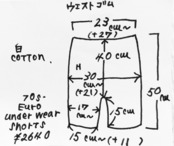 ウエストゴム
23 cm~
(+27)
白
COTTON.
40 cm
N
30 cm~
(+21)
50 cm
70s-
Euro
under wear
shorts
¥2640
17 cm~
5 cm
15 cm~(+11)